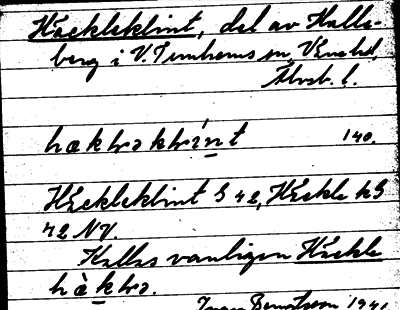 Häckleklint, del av Halle-
berg i V. Tunhems sn, Väne hd,
Älvsb. l.
hækləklínt 140.
Häckleklint G 42, Häckle kG
42 NV.
Kallas vanligen Häckle
hæ̀klə.
1941